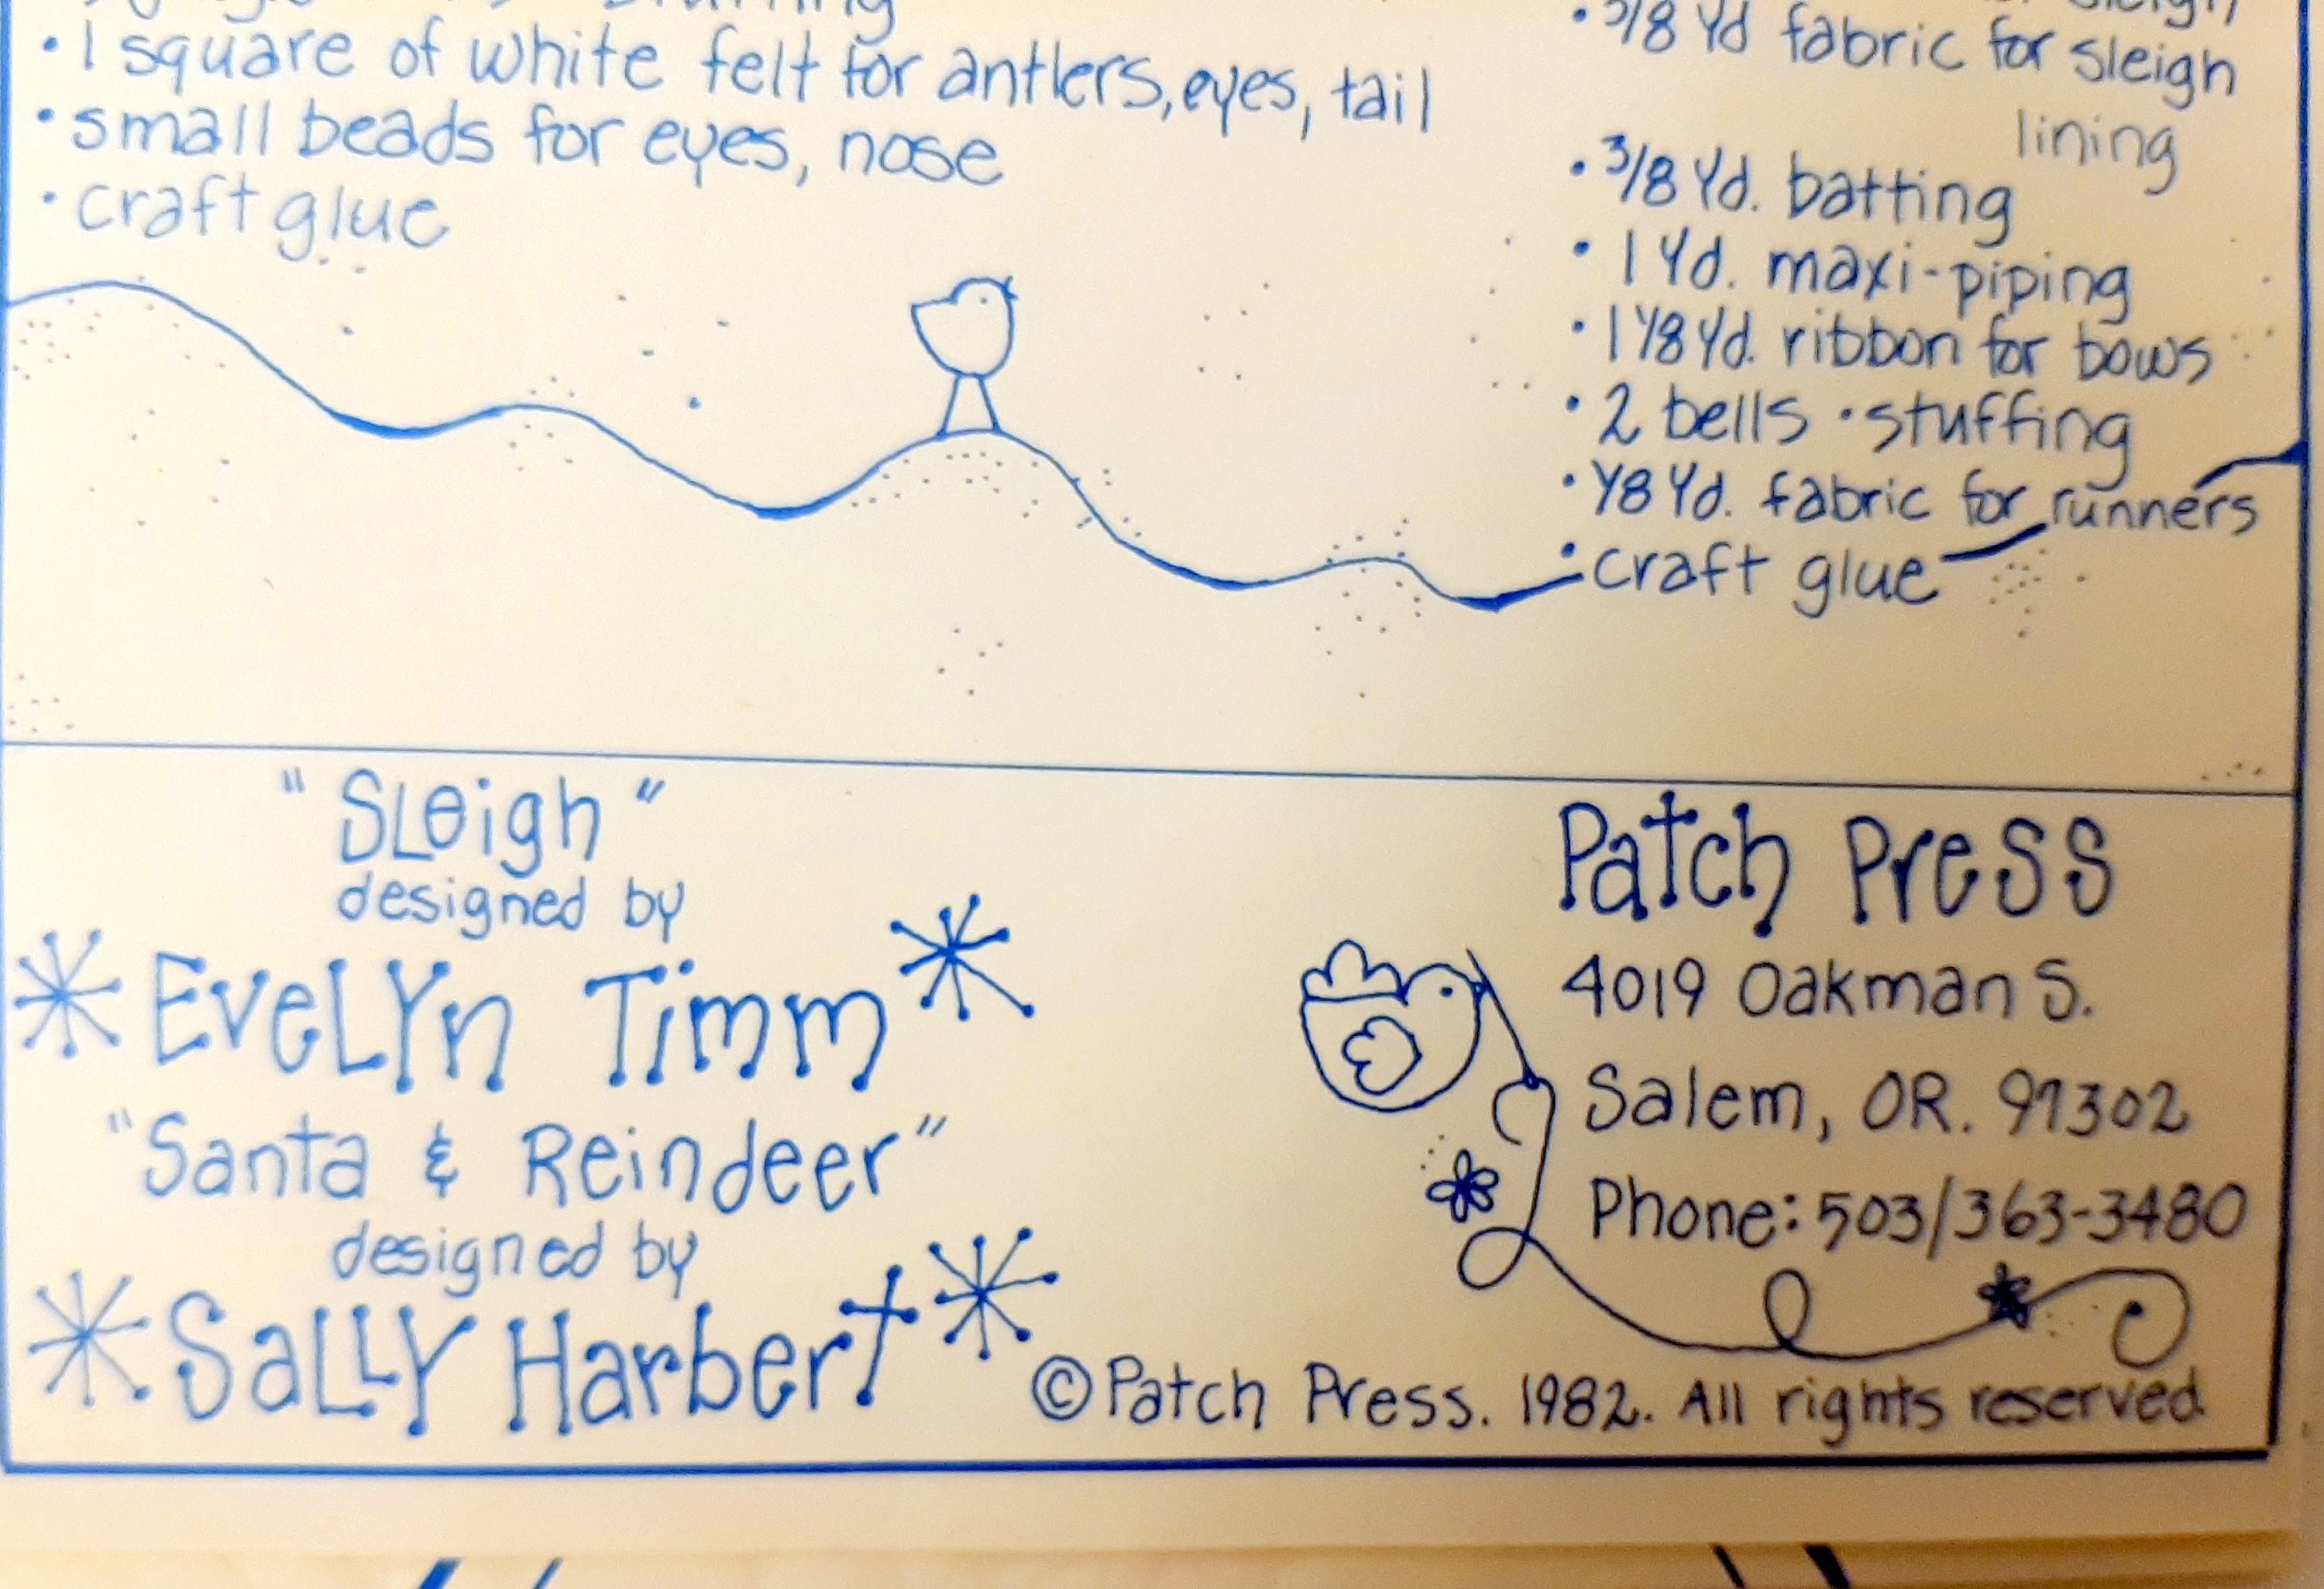 stuffing
• 1 square of white felt for antlers, eyes, tail
• small beads for eyes, nose
• craft glue
sleigh
• 3/8 Yd fabric for sleigh
lining
• 3/8 Yd. batting
• 1 Yd. maxi-piping
• 1 1/8 Yd. ribbon for bows
• 2 bells • stuffing
• 1/8 Yd. fabric for runners
• craft glue
"Sleigh"
designed by
Evelyn Timm
"Santa & Reindeer"
designed by
Sally Harbert
Patch Press
4019 Oakman S.
Salem, OR. 97302
Phone: 503/363-3480
© Patch Press. 1982. All rights reserved